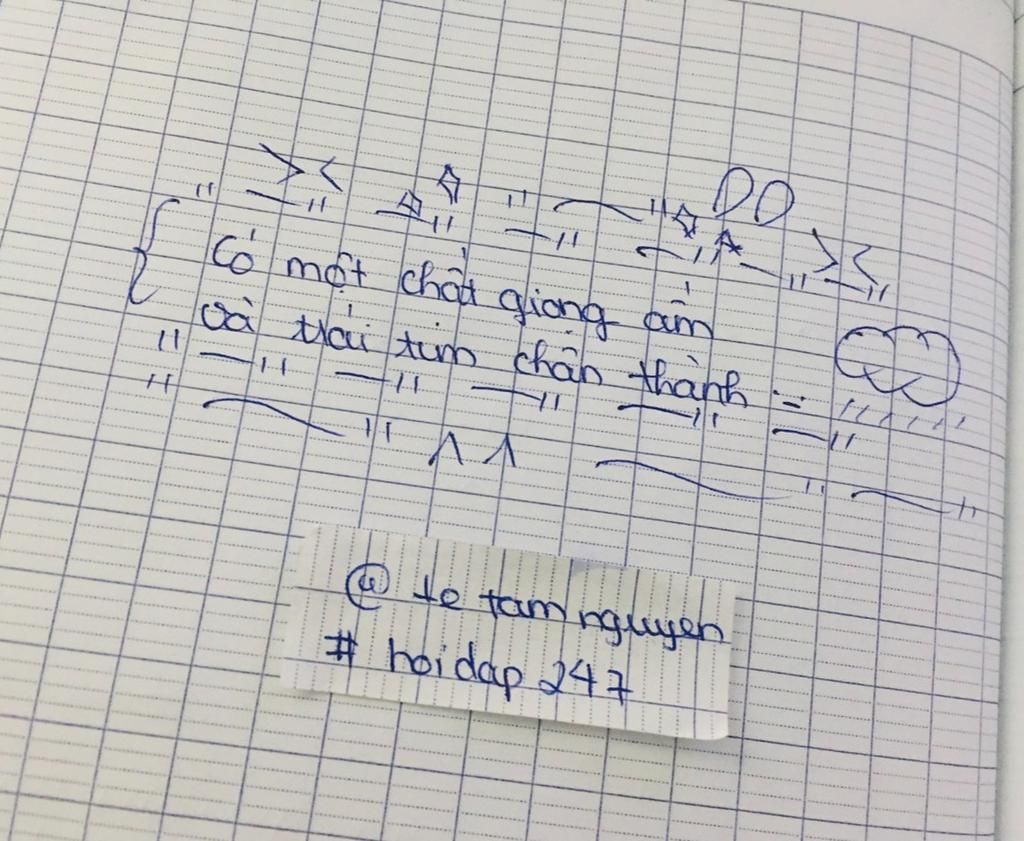 Có một chất giọng ấm
và trái tim chân thành =
@ te tam nguyen
# hoi dap 247